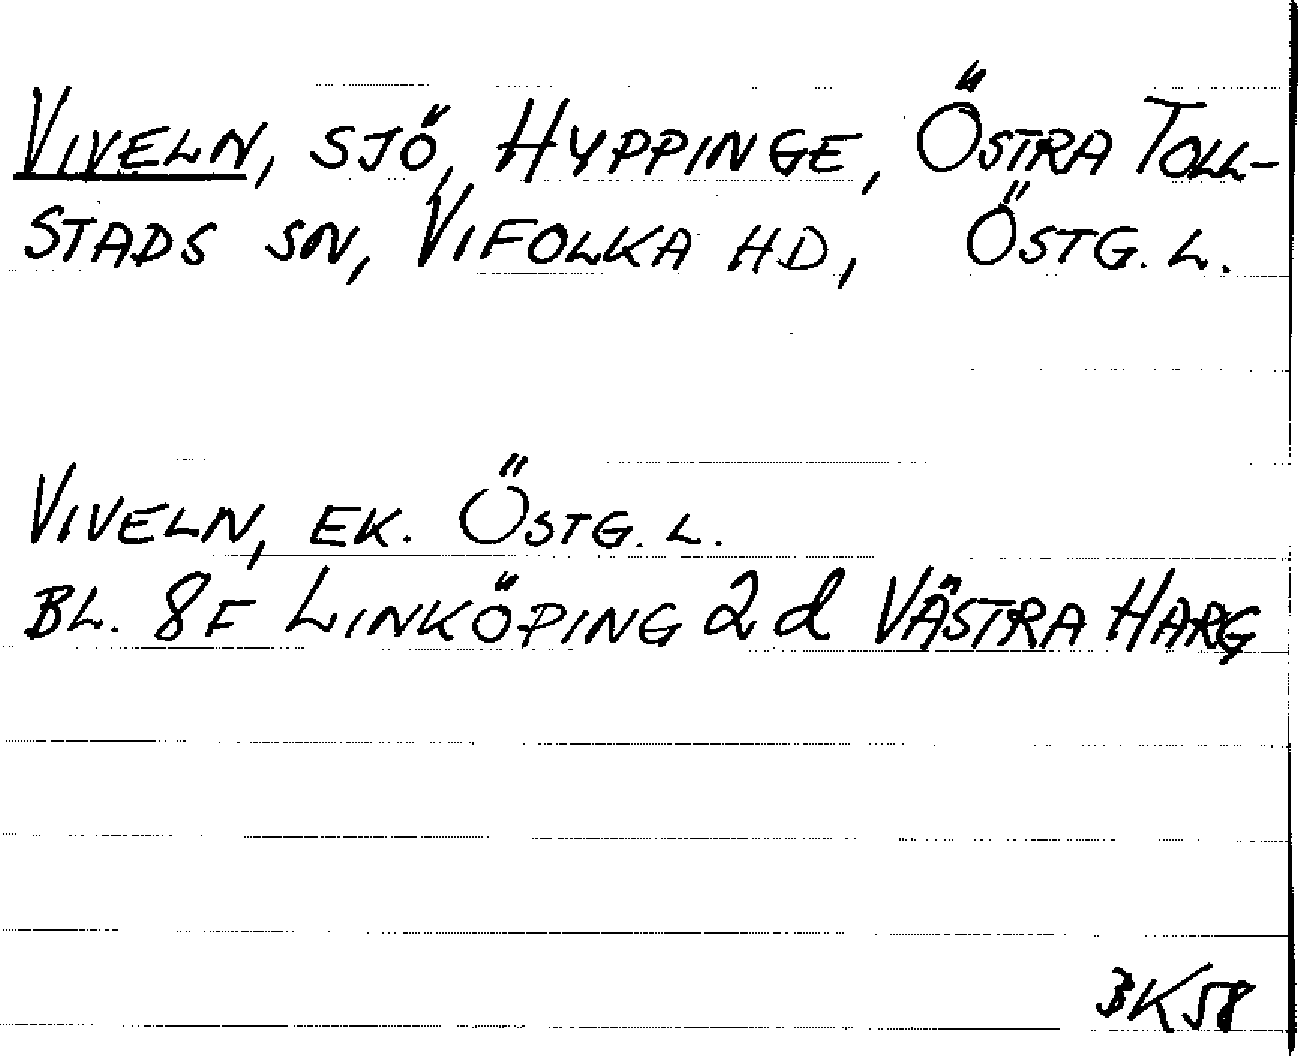 VIVELN, SJÖ, HYPPINGE, ÖSTRA TOLL-
STADS SN, VIFOLKA HD, ÖSTG. L.
VIVELN, EK. ÖSTG. L.
BL. 8F LINKÖPING 2d VÄSTRA HARG
BK58